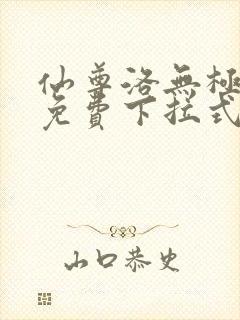 仙尊洛無極
免費下拉式
山口恭史